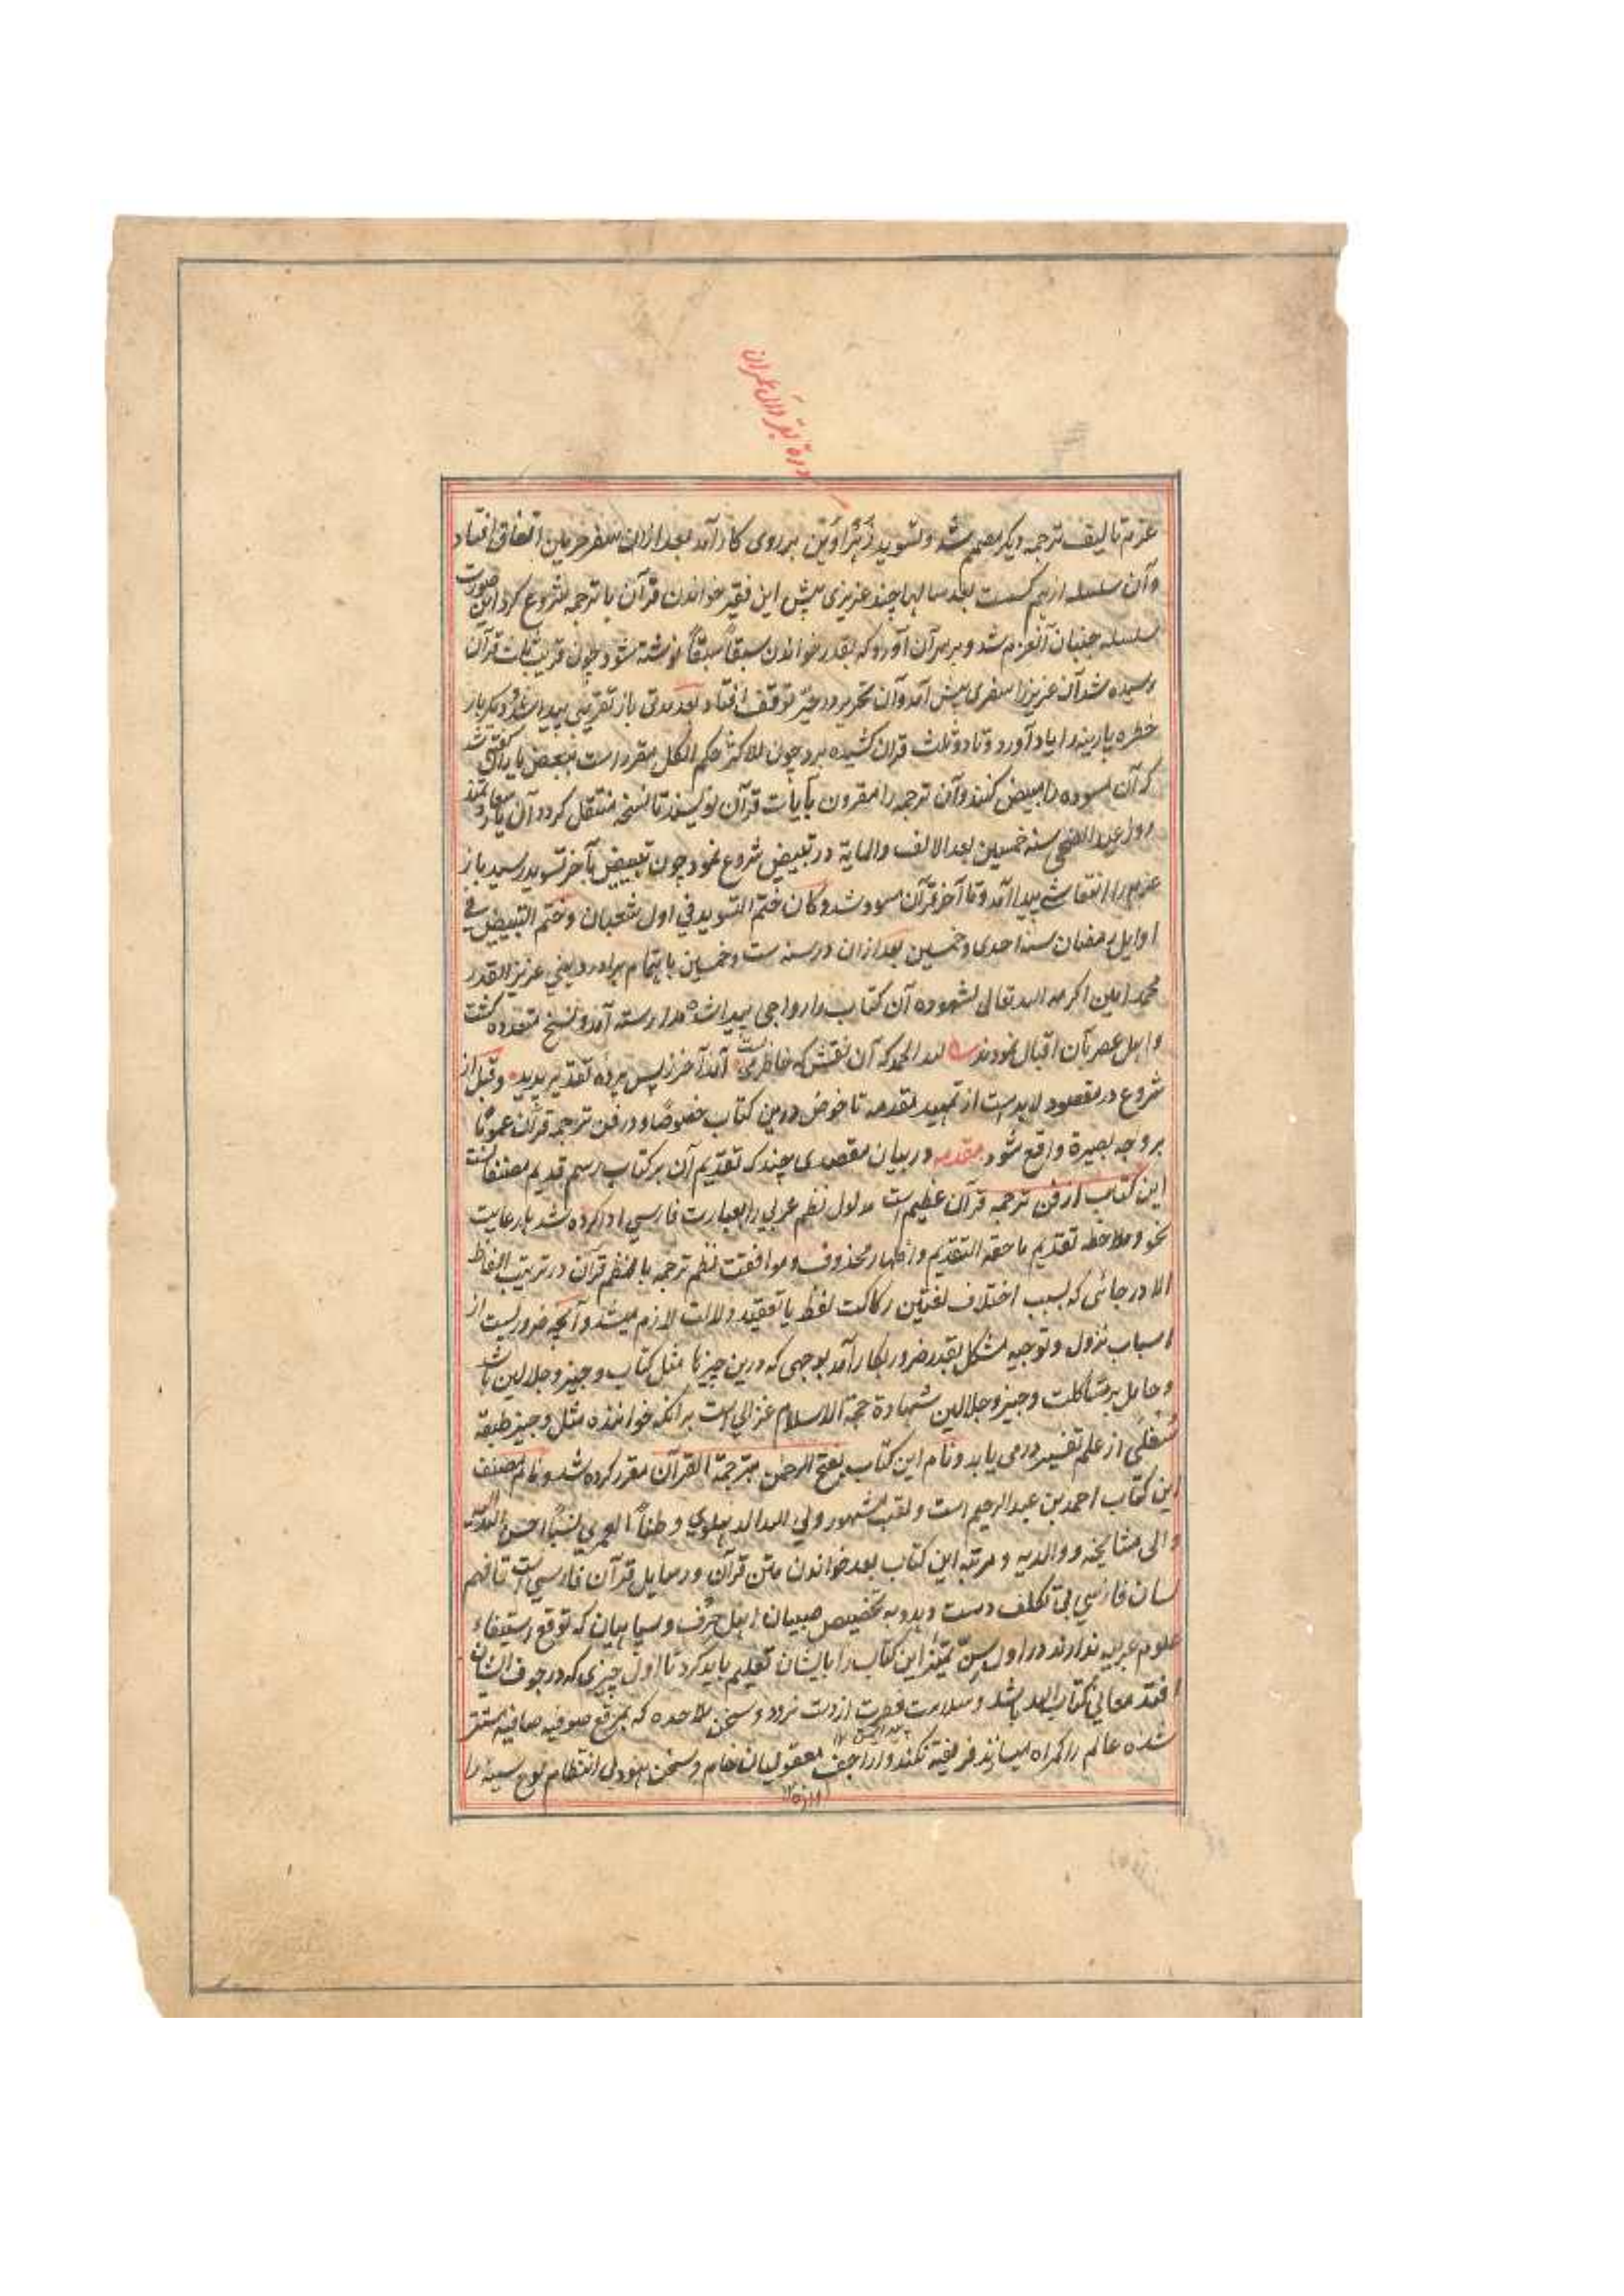 سورة بقره و آل عمران
عزم تالیف ترجمه دیگر مصمم شد و تسوید زَهْراوَین بر روی کار آمد بعد ازان سفر حرمین اتفاق افتاد
وآن سلسله از هم گسست بعد سالها چند عزیزی پیش این فقیر خواندن قرآن با ترجمه شروع کرد این صورت
سلسله جنبان آنعزم شد و بر سر آن آورد که بقدر خواندن سبقاً سبقاً نوشته شود چون قریب ثلث قرآن
رسیده شد آن عزیز را سفری پیش آمد وآن تحریر در حیّز توقف افتاد بعد مدتی باز تقریبی پیدا شد و دیگر بار
خطره پارینه را یاد آورد و تا دو ثلث قرآن کشیده برد چون للاکثر حکم الکل مقرر است ببعض یاران گفته شد
که آن مسوده را مبیض کنند وآن ترجمه را مقرون بآیات قرآن نویسند تا نسخه منتقل گردد آن یار سعادتمند
روز عید الضحی سنه خمسین بعد الالف والمایة در تبییض شروع نمود چون تبییض بآخر تسوید رسید باز
عزم را انتعاشی پیدا آمد و تا آخر قرآن مسود شد و کان ختم التسوید فی اول شعبان وختم التبییض فی
اوایل رمضان سنه احدی وخمسین بعد ازان در سنه ست وخمسین باهتمام برادر دینی عزیز القدر
محمد امین اکرمه الله تعالی بشهوده آن کتاب را رواجی پیدا شد مدارسته آمد و نسخ متعدده گشت
واهل عصر بآن اقبال نمودند لله الحمد که آن نقش که خاطر می بست آمد آخر ز پس پرده تقدیر پدید وقبل از
شروع در مقصود لابد است از تمهید مقدمه تا خوض درین کتاب خصوصًا و در فن ترجمه قرآن عمومًا
بر وجه بصیرة واقع شود مقدمه در بیان مقصدی چند که تقدیم آن بر کتاب رسم قدیم مصنفانست
این کتاب از فن ترجمه قرآن عظیم است مدلول نظم عربی را بعبارت فارسی ادا کرده شد با رعایت
نحو و ملاحظه تقدیم ما حقه التقدیم واظهار محذوف و موافقت نظم ترجمه با نظم قرآن در ترتیب الفاظ
الا در جائی که بسبب اختلاف لغتین رکاکت لفظ یا تعقید دلالت لازم میشد وآنچه ضروریست از
اسباب نزول و توجیه مشکل بقدر ضرور بکار آمد بوجهی که درین چیزها مثل کتاب وجیز و جلالین باشد
و حامل بر مشاکلت وجیز و جلالین شهادة حجة الاسلام غزالی است برانکه خواننده مثل وجیز طبقه
سُفلی از علم تفسیر در می یابد و نام این کتاب بفتح الرحمن بترجمة القرآن مقرر کرده شد و نام مصنف
این کتاب احمد بن عبد الرحیم است و لقب مشهور ولی الله الدهلوی وطناً العمری نسباً احسن الله الیه
والی مشایخه و والدیه و مرتبه این کتاب بعد خواندن متن قرآن و رسایل قرآن فارسی است تا فهم
لسان فارسی بی تکلف دست دهد و به تخصیص صبیان اهل حِرَف و سپاهیان که توقع استیفاء
علوم عربیه ندارند در اول سِنّ تمیز این کتاب را بایشان تعلیم باید کرد تا اول چیزی که در جوف ایشان
افتد معانی کتاب الله باشد و سلامت فطرت از دست نرود و سخن ملاحده که بمرقع صوفیه صافیه مستتر
شده عالم را گمراه میسازند فریفته نکند واراجف معقولیان خام و سخن هنود بی انتظام لوح سینه را